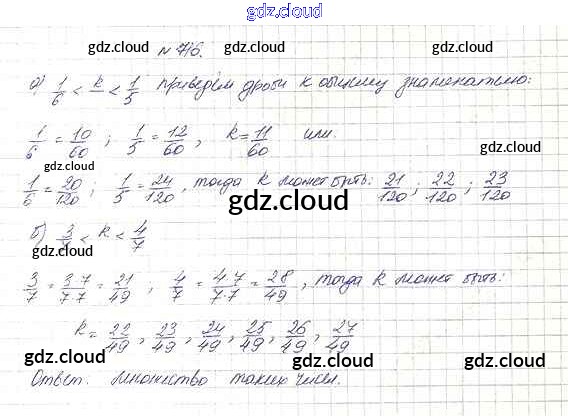 gdz.cloud
gdz.cloud № 716. gdz.cloud
а) 1/6 < k < 1/5 приведём дроби к общему знаменателю:
gdz.cloud gdz.cloud
1/6 = 10/60 ; 1/5 = 12/60 , k = 11/60 или
gdz.cloud gdz.cloud
1/6 = 20/120 ; 1/5 = 24/120 , тогда k может быть: 21/120 ; 22/120 ; 23/120
gdz.cloud
б) 3/7 < k < 4/7
gdz.cloud gdz.cloud
3/7 = 3·7/7·7 = 21/49 ; 4/7 = 4·7/7·7 = 28/49 , тогда k может быть:
k = 22/49 , 23/49 , 24/49 , 25/49 , 26/49 , 27/49
gdz.cloud gdz.cloud gdz.cloud
Ответ. множество таких чисел.
gdz.cloud gdz.cloud